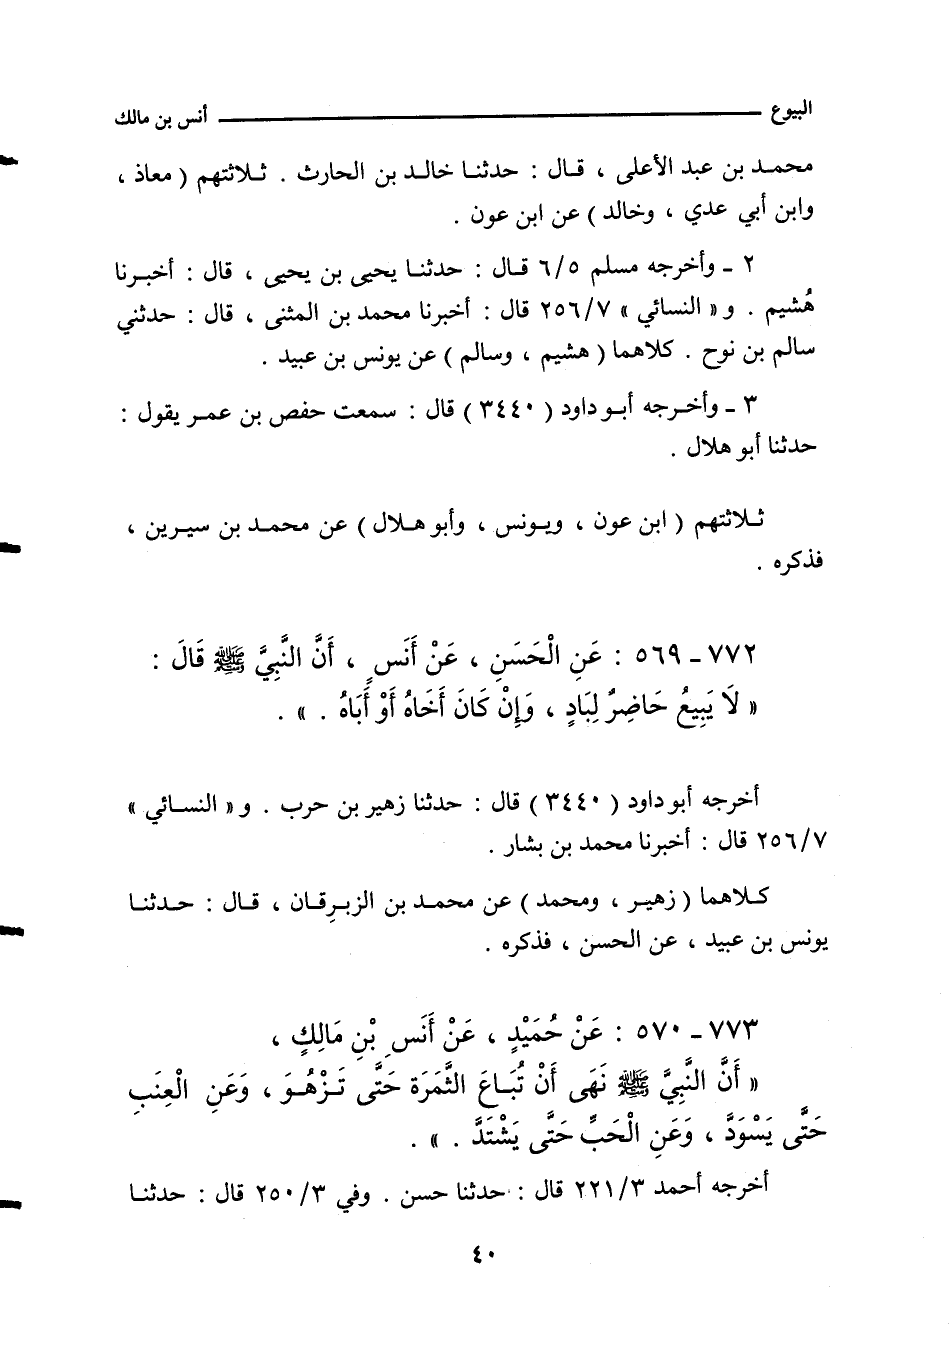 البيوع ـــــــــ أنس بن مالك
محمد بن عبد الأعلى ، قال : حدثنا خالد بن الحارث . ثلاثتهم ( معاذ ،
وابن أبي عدي ، وخالد ) عن ابن عون .
٢ - وأخرجه مسلم ٦/٥ قال : حدثنا يحيى بن يحيى ، قال : أخبرنا
هُشيم . و« النسائي » ٢٥٦/٧ قال : أخبرنا محمد بن المثنى ، قال : حدثني
سالم بن نوح . كلاهما ( هشيم ، وسالم ) عن يونس بن عبيد .
٣ - وأخرجه أبو داود ( ٣٤٤٠ ) قال : سمعت حفص بن عمر يقول :
حدثنا أبو هلال .
ثلاثتهم ( ابن عون ، ويونس ، وأبو هلال ) عن محمد بن سيرين ،
فذكره .
٧٧٢ - ٥٦٩ : عَنِ الْحَسَنِ ، عَنْ أَنَسٍ ، أَنَّ النَّبِيَّ ﷺ قَالَ :
« لَا يَبِيعُ حَاضِرٌ لِبَادٍ ، وَإِنْ كَانَ أَخَاهُ أَوْ أَبَاهُ . » .
أخرجه أبو داود ( ٣٤٤٠ ) قال : حدثنا زهير بن حرب . و« النسائي »
٢٥٦/٧ قال : أخبرنا محمد بن بشار .
كلاهما ( زهير ، ومحمد ) عن محمد بن الزبرقان ، قال : حدثنا
يونس بن عبيد ، عن الحسن ، فذكره .
٧٧٣ - ٥٧٠ : عَنْ حُمَيْدٍ ، عَنْ أَنَسِ بْنِ مَالِكٍ ،
« أَنَّ النَّبِيَّ ﷺ نَهَى أَنْ تُبَاعَ الثَّمَرَة حَتَّى تَزْهُوَ ، وَعَنِ الْعِنَبِ
حَتَّى يَسْوَدَّ ، وَعَنِ الْحَبِّ حَتَّى يَشْتَدَّ . » .
أخرجه أحمد ٢٢١/٣ قال : حدثنا حسن . وفي ٢٥٠/٣ قال : حدثنا
٤٠